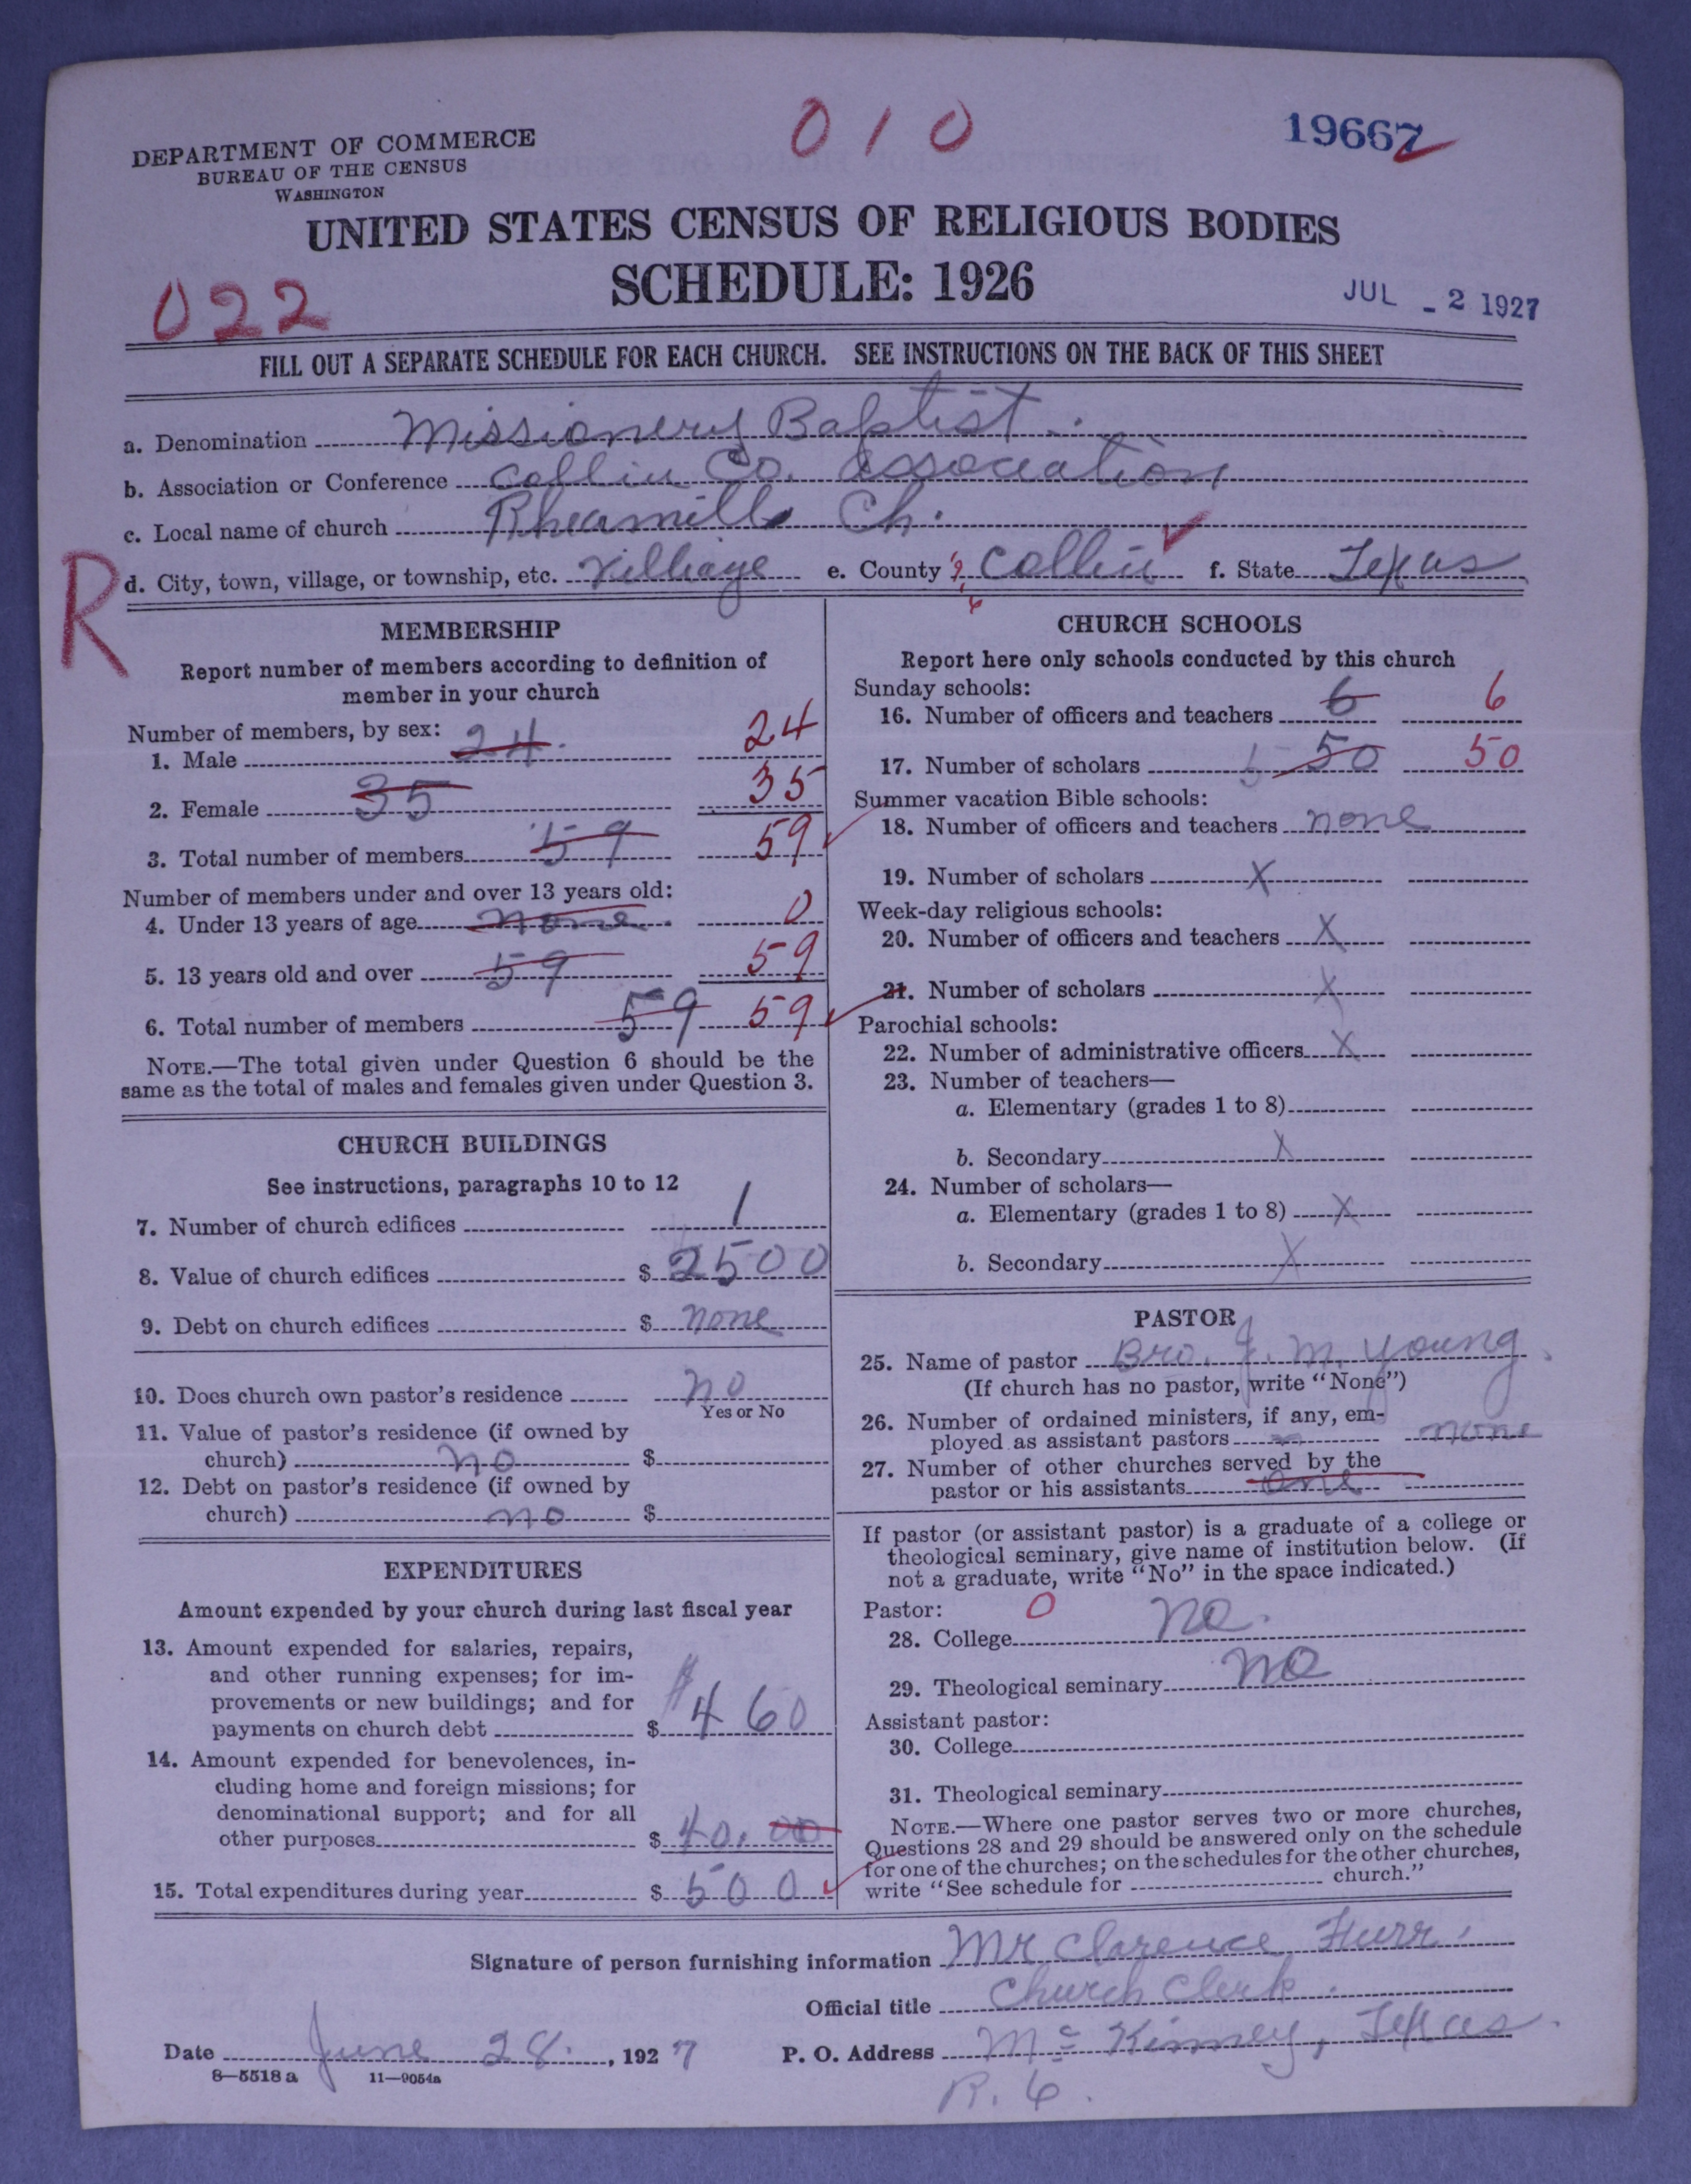 0 1 0
19667
DEPARTMENT OF COMMERCE
BUREAU OF THE CENSUS
WASHINGTON
UNITED STATES CENSUS OF RELIGIOUS BODIES
SCHEDULE: 1926
022
JUL - 2 1927
FILL OUT A SEPARATE SCHEDULE FOR EACH CHURCH. SEE INSTRUCTIONS ON THE BACK OF THIS SHEET
a. Denomination Missionery Baptist
b. Association or Conference Collin Co. Association
c. Local name of church Rheamills Ch.
R
d. City, town, village, or township, etc. Villiage e. County Collin f. State Texas
MEMBERSHIP
Report number of members according to definition of
member in your church
Number of members, by sex:
1. Male 24. 24
2. Female 35 35
3. Total number of members 59 59
Number of members under and over 13 years old:
4. Under 13 years of age none. 0
5. 13 years old and over 59 59
6. Total number of members 59 59
NOTE.—The total given under Question 6 should be the
same as the total of males and females given under Question 3.
CHURCH BUILDINGS
See instructions, paragraphs 10 to 12
7. Number of church edifices 1
8. Value of church edifices $ 2500
9. Debt on church edifices $ none
10. Does church own pastor's residence no
Yes or No
11. Value of pastor's residence (if owned by
church) no $
12. Debt on pastor's residence (if owned by
church) no $
EXPENDITURES
Amount expended by your church during last fiscal year
13. Amount expended for salaries, repairs,
and other running expenses; for im-
provements or new buildings; and for
payments on church debt $ $460
14. Amount expended for benevolences, in-
cluding home and foreign missions; for
denominational support; and for all
other purposes $ 40.00
15. Total expenditures during year $ 500
CHURCH SCHOOLS
Report here only schools conducted by this church
Sunday schools:
16. Number of officers and teachers 6 6
17. Number of scholars 5 50 50
Summer vacation Bible schools:
18. Number of officers and teachers none
19. Number of scholars X
Week-day religious schools:
20. Number of officers and teachers X
21. Number of scholars X
Parochial schools:
22. Number of administrative officers X
23. Number of teachers—
a. Elementary (grades 1 to 8)
b. Secondary X
24. Number of scholars—
a. Elementary (grades 1 to 8) X
b. Secondary X
PASTOR
25. Name of pastor Bro. J. M. Young.
(If church has no pastor, write "None")
26. Number of ordained ministers, if any, em-
ployed as assistant pastors none
27. Number of other churches served by the
pastor or his assistants one
If pastor (or assistant pastor) is a graduate of a college or
theological seminary, give name of institution below. (If
not a graduate, write "No" in the space indicated.)
Pastor: 0
28. College no.
29. Theological seminary no
Assistant pastor:
30. College
31. Theological seminary
NOTE.—Where one pastor serves two or more churches,
Questions 28 and 29 should be answered only on the schedule
for one of the churches; on the schedules for the other churches,
write "See schedule for church."
Signature of person furnishing information Mr Clarence Furr.
Official title Church Clerk.
Date June 28., 1927 P. O. Address McKinney, Texas.
8—5518 a 11—9054a
R. 6.